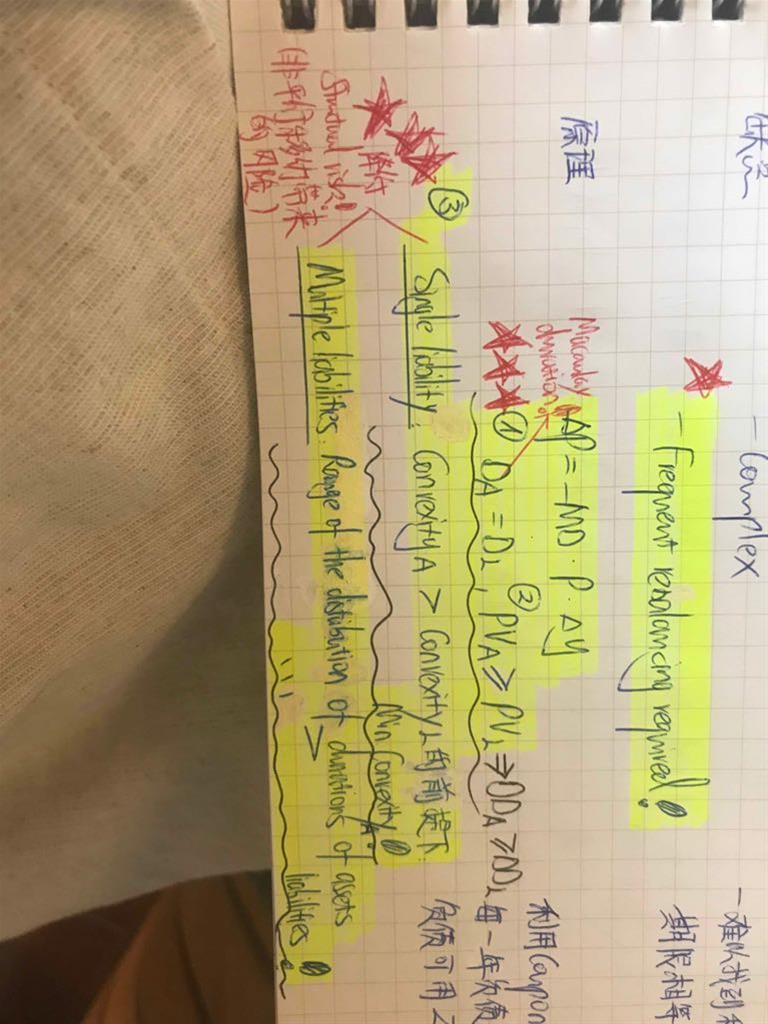 - Complex
- 难以找到
期限相等
- Frequent rebalancing required!
原理
ΔP = -MD · P · Δy
利用Coupon
Macaulay duration
① D_A = D_L, ② PV_A ≥ PV_L ⇒ DD_A ≥ DD_L
每一年负债
负债可用
③ Single liability: Convexity A > Convexity L 的前提下
Min Convexity A!
Structural risk!
(非平行移动带来
的风险)
Multiple liabilities: Range of the distribution of durations of assets
> ''' liabilities!